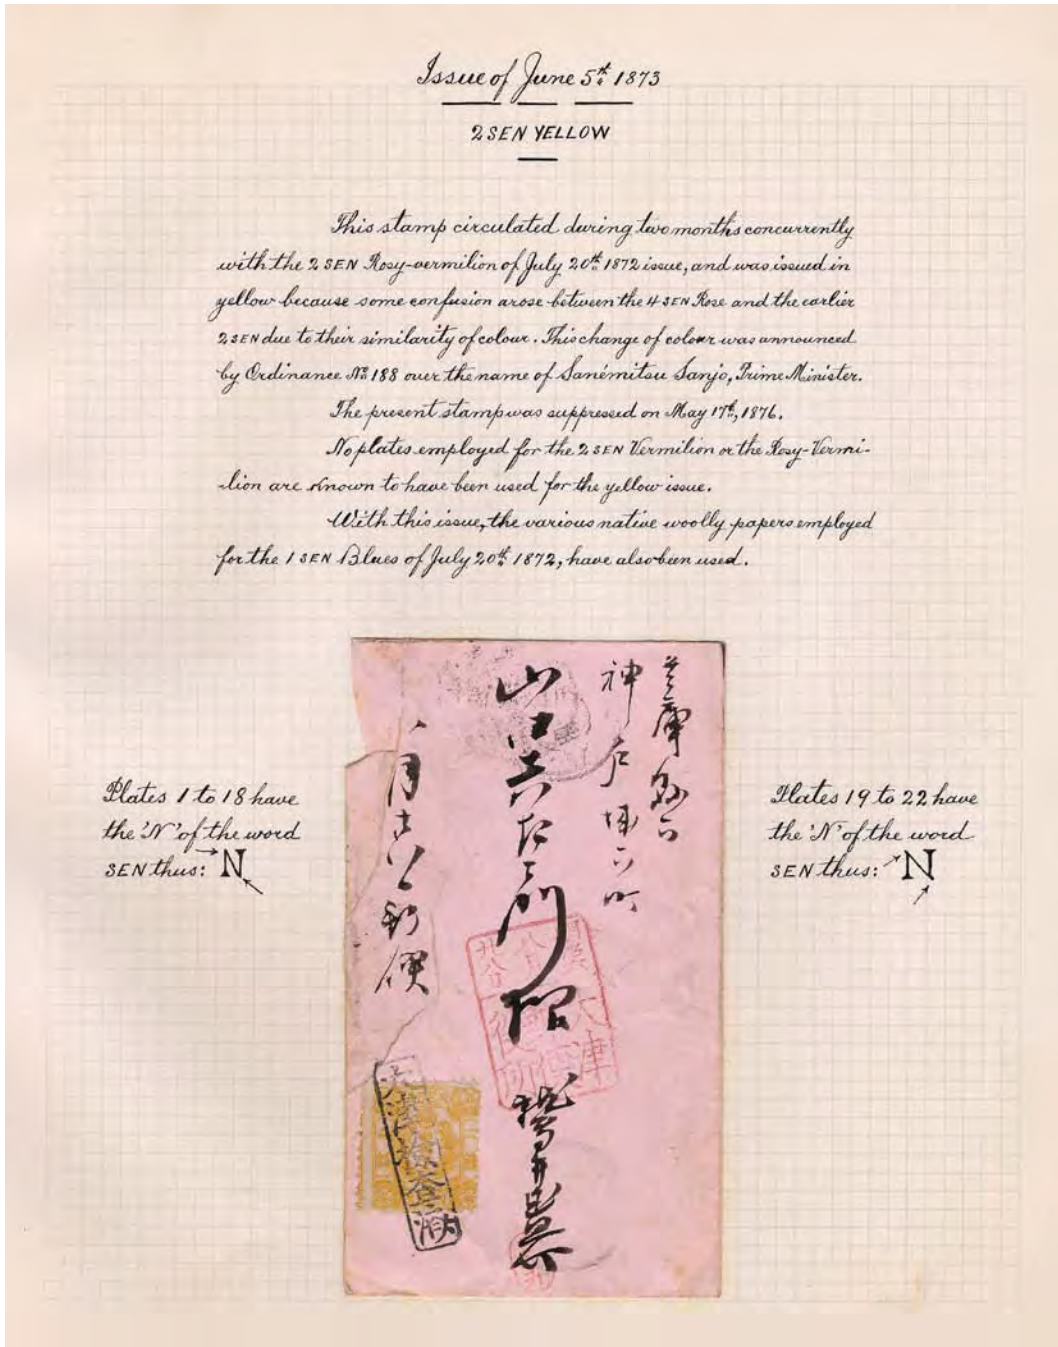 Issue of June 5th 1873
2 SEN YELLOW
This stamp circulated during two months concurrently
with the 2 SEN Rosy-vermilion of July 20th 1872 issue, and was issued in
yellow because some confusion arose between the 4 SEN Rose and the earlier
2 SEN due to their similarity of colour. This change of colour was announced
by Ordinance No 188 over the name of Sanémitsu Sanjo, Prime Minister.
The present stamp was suppressed on May 17th, 1876.
No plates employed for the 2 SEN Vermilion or the Rosy-Vermi-
lion are known to have been used for the yellow issue.
With this issue, the various native woolly papers employed
for the 1 SEN Blues of July 20th 1872, have also been used.
Plates 1 to 18 have
the 'N' of the word
SEN thus: N
Plates 19 to 22 have
the 'N' of the word
SEN thus: N
神戸
山
月
郵便
大津